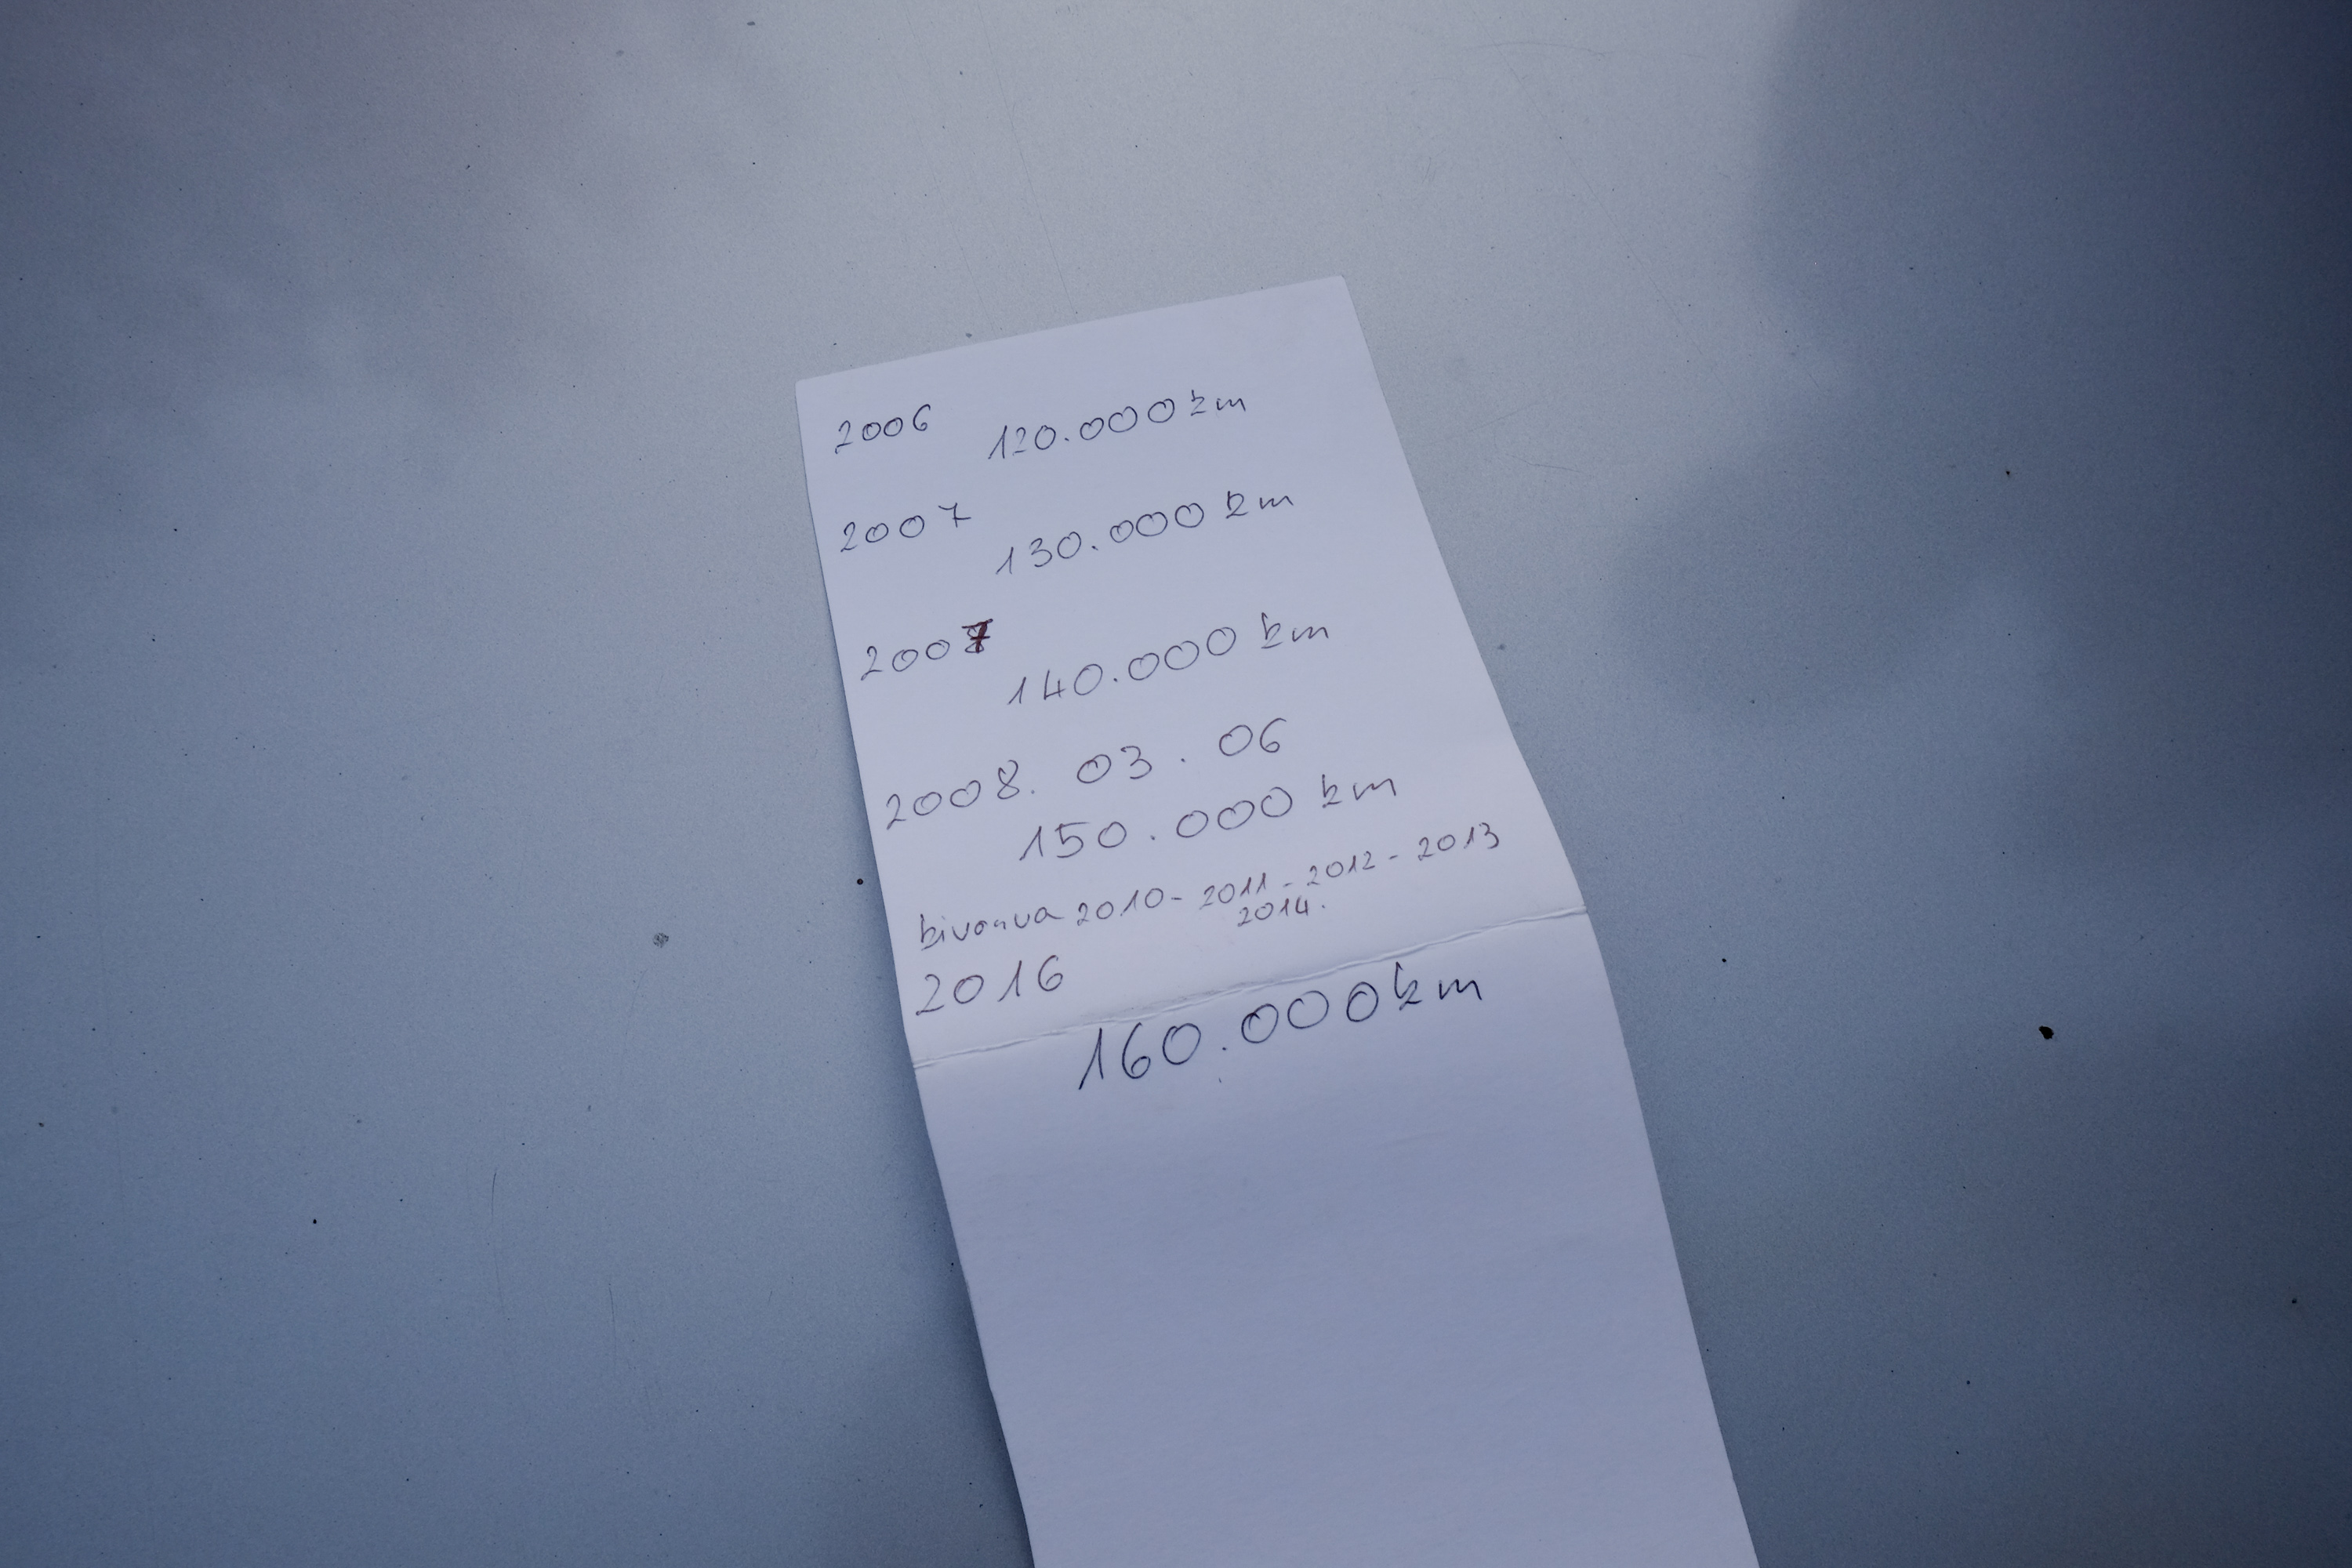 2006 120.000 km
2007 130.000 km
2007 140.000 km
2008. 03. 06
150.000 km
kivonva 2010 - 2011 - 2012 - 2013
2014.
2016
160.000 km